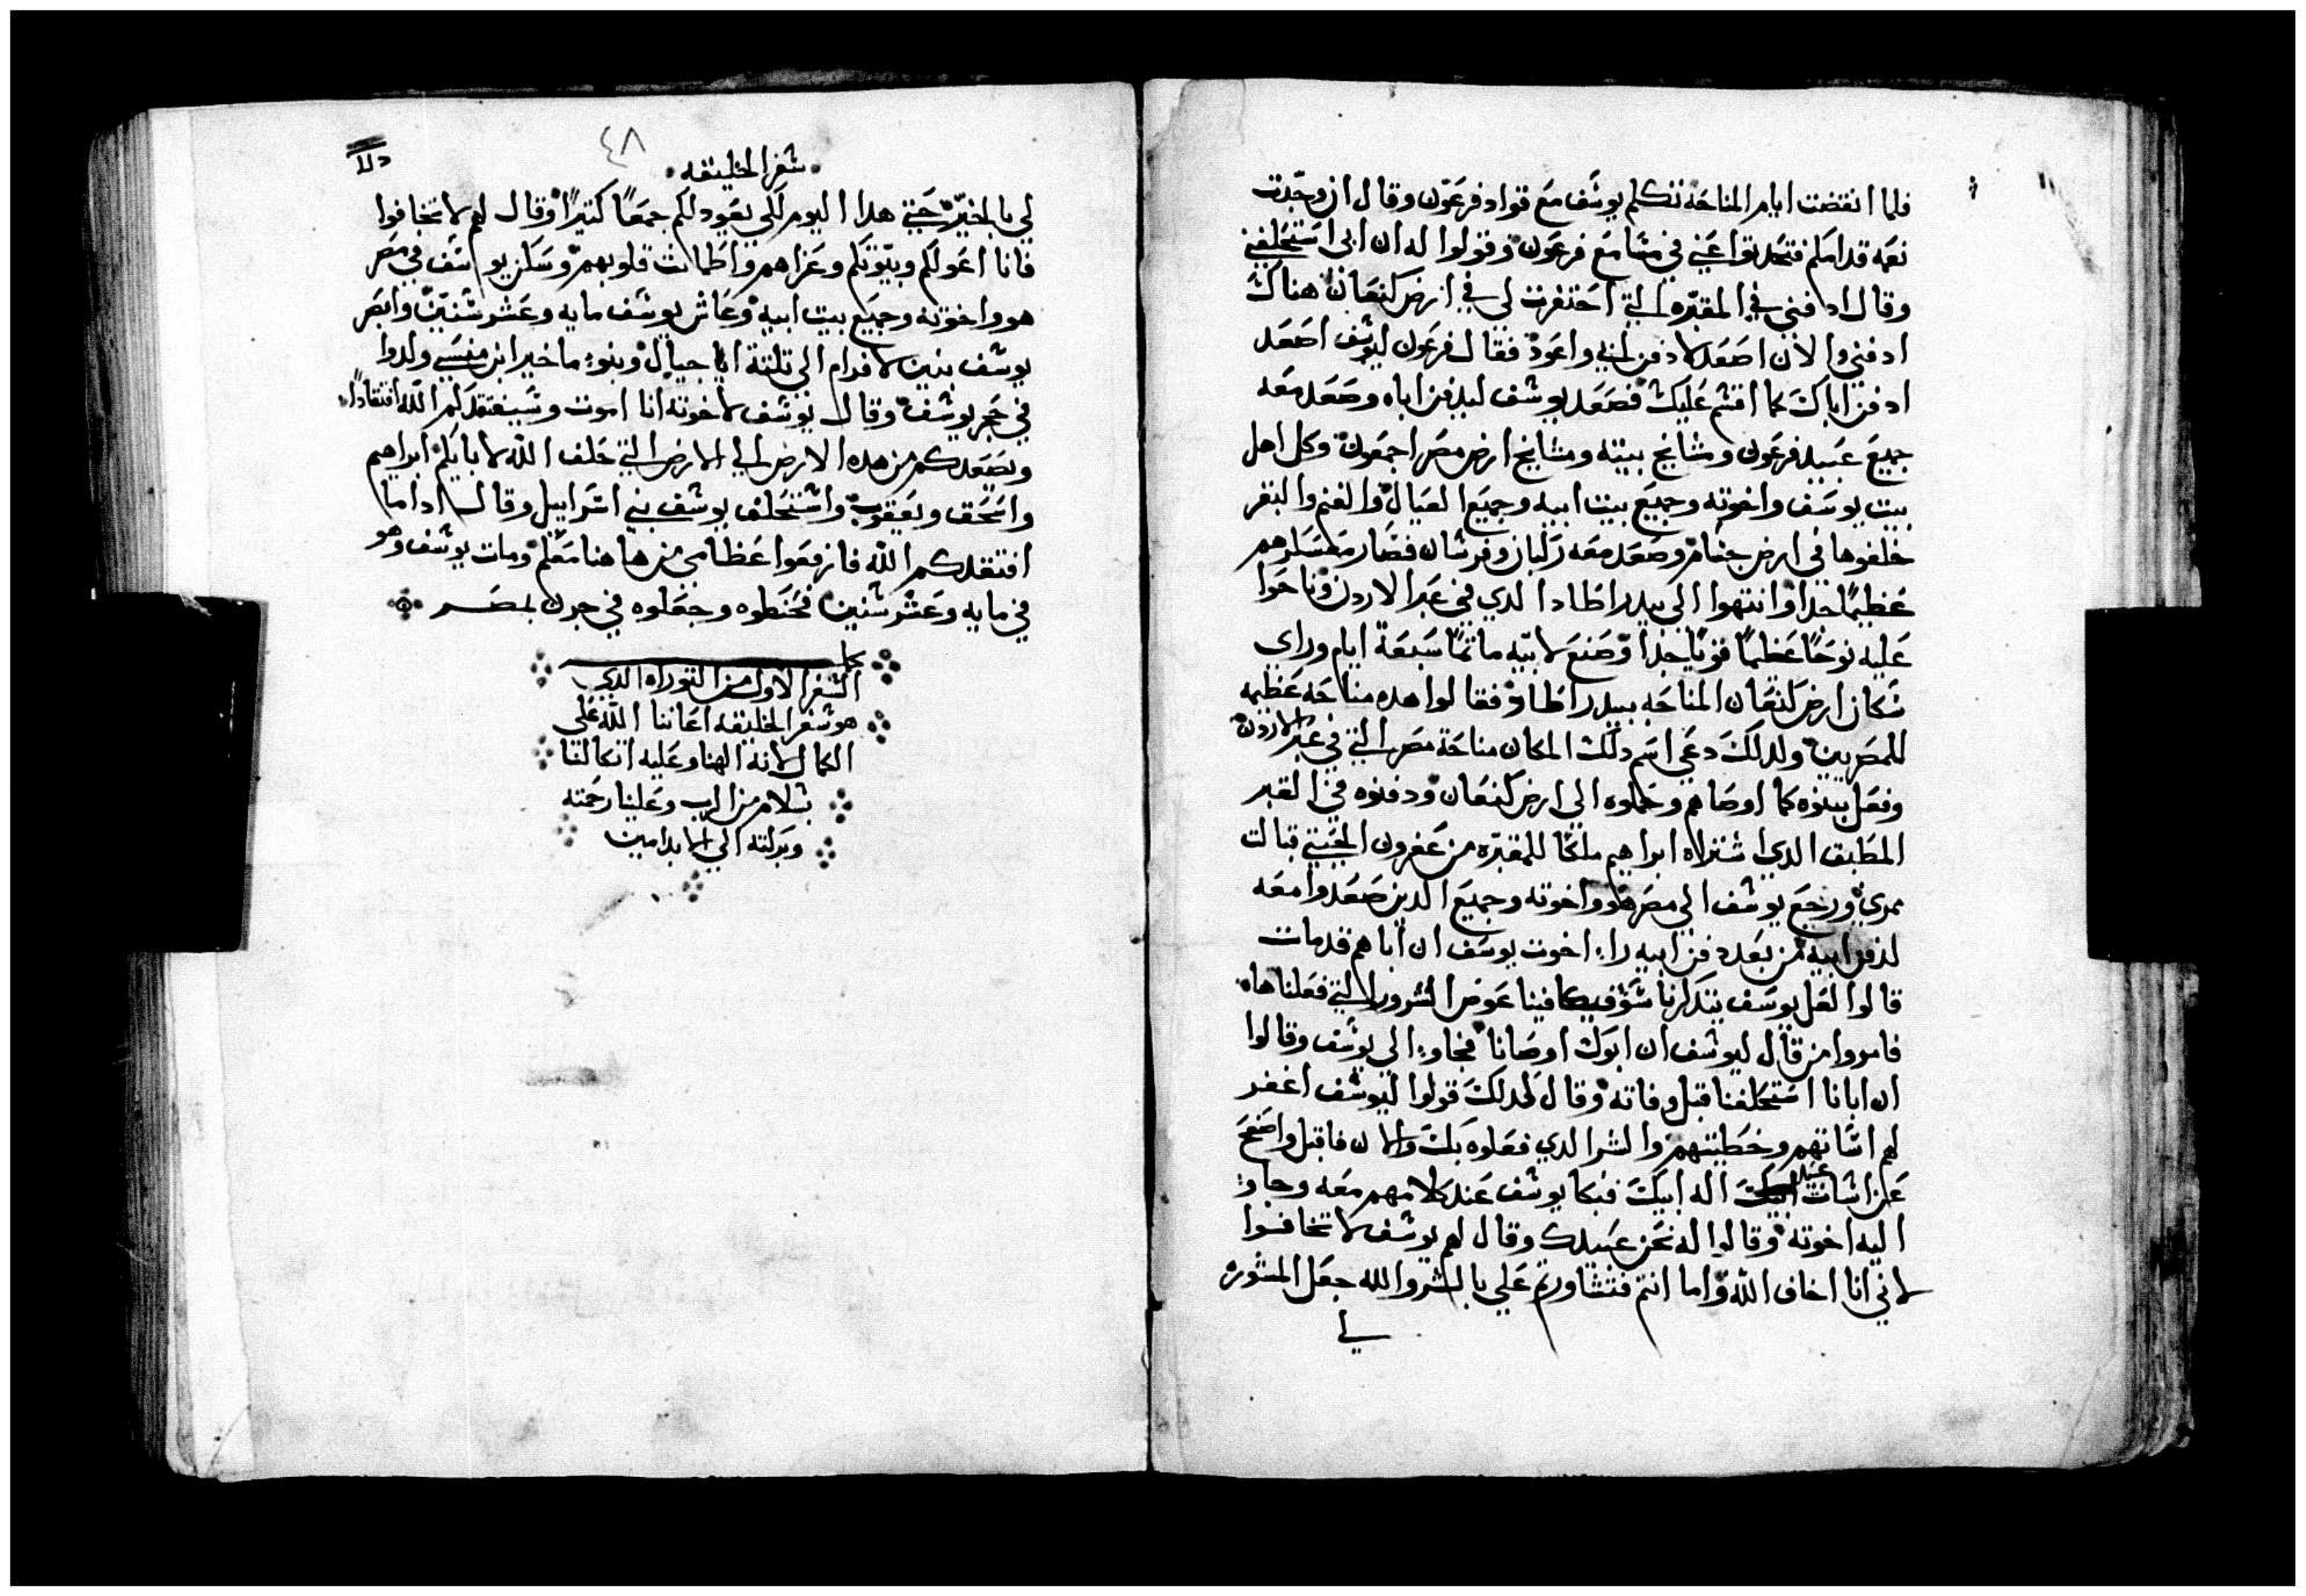 فلما انقضت ايام المناحه تكلم يوسف مع قواد فرعون وقال ان وجدت
نعمه قدامكم فتحدتوا عني في مسامع فرعون وقولوا له ان ابي استحلفني
وقال ادفني في المقبره التي احتفرت لي في ارض كنعان هناك
ادفني والان اصعد لادفن ابي واعود فقال فرعون ليوشف اصعد
ادفن اباك كما اقشم عليك فصعد يوشف ليدفن اباه وصعد معه
جميع عبيد فرعون ومشايخ بيته ومشايخ ارض مصر اجمعون وكل اهل
بيت يوسف واخوته وجميع بيت ابيه وجميع العيال والغنم والبقر
خلفوها في ارض وصعد معه ركبان وفرشان فصار معسكرهم
عظيمًا جدا وانتهوا الى بيدر اطادا الدي في عبر الاردن وناحوا
عليه نوحًا عظيمًا قويًا جدا وصنع لابيه ماتمًا سبعة ايام وراي
سكان ارض كنعان المناحه ببيدر اطاد فقالوا هده مناحه عظيمه
للمصريين ولدلك دعي اسم دلك المكان مناحة مصر التي في عبر الاردن
وفعل بنوه كما اوصاهم وحملوه الي ارض كنعان ودفنوه في القبر
المطبق الدي اشتراه ابراهيم ملكًا للمقبره من عفرون الحيتي قبالت
ممري ورجع يوشف الي مصر هو واخوته وجميع الدين صعدوا معه
لدفن ابيه من بعد دفن ابيه راء اخوت يوسف ان اباهم قد مات
قالوا لعل يوسف يتدكرنا عوض الشرور التي فعلناها
فامروا من قال ليوشف ان ابوك اوصانا فجاوا الي يوشف وقالوا
ان ابانا استحلفنا قبل وفاته وقال كدلك قولوا ليوشف اغفر
لهم اساتهم وخطيتهم والشر الدي فعلوه بك والان فاقبل واصفح
عن اسات عبيد اله ابيك فبكا يوشف عند كلامهم معه وجاوا
اليه اخوته وقالوا له نحن عبيدك وقال لهم يوشف لا تخافوا
لاني انا اخاف الله واما انتم فتشاورتم علي بالشر والله جعل المشوره
لي
شفر الخليقه
٤٨
لي بالخير حتي هدا اليوم لكي يعود لكم جمعًا كتيرًا وقال لهم لا تخافوا
فانا اعولكم وبيوتكم وعزاهم واطمانت قلوبهم وسكن يوسف في مصر
هو واخوته وجميع بيت ابيه وعاش يوشف مايه وعشر شنين وابصر
يوشف بنين لافرام الي تلتة اجيال وبنو ماخير ابن منسي ولدوا
في حجر يوشف وقال يوشف لاخوته انا اموت وسيفتقدكم الله افتقادًا
ويصعدكم من هده الارض الي الارض التي حلف الله لابايكم ابراهيم
واسحق ويعقوب واشتحلف يوشف بني اشراييل وقال اداما
افتقدكم الله فارفعوا عظامي من هاهنا معكم ومات يوشف وهو
في مايه وعشر شنين فحنطوه وجعلوه في جرن بمصر
كمل
الشفر الاول من التوراه الدي
هو شفر الخليقه اعاننا الله علي
الكمال لانه الهنا وعليه اتكالنا
بشلام من الرب وعلينا رحمته
وبركته الي الابد امين